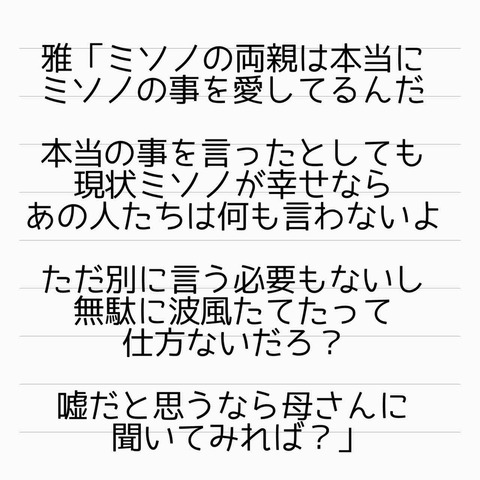 雅「ミソノの両親は本当に
ミソノの事を愛してるんだ
本当の事を言ったとしても
現状ミソノが幸せなら
あの人たちは何も言わないよ
ただ別に言う必要もないし
無駄に波風たてたって
仕方ないだろ？
嘘だと思うなら母さんに
聞いてみれば？」